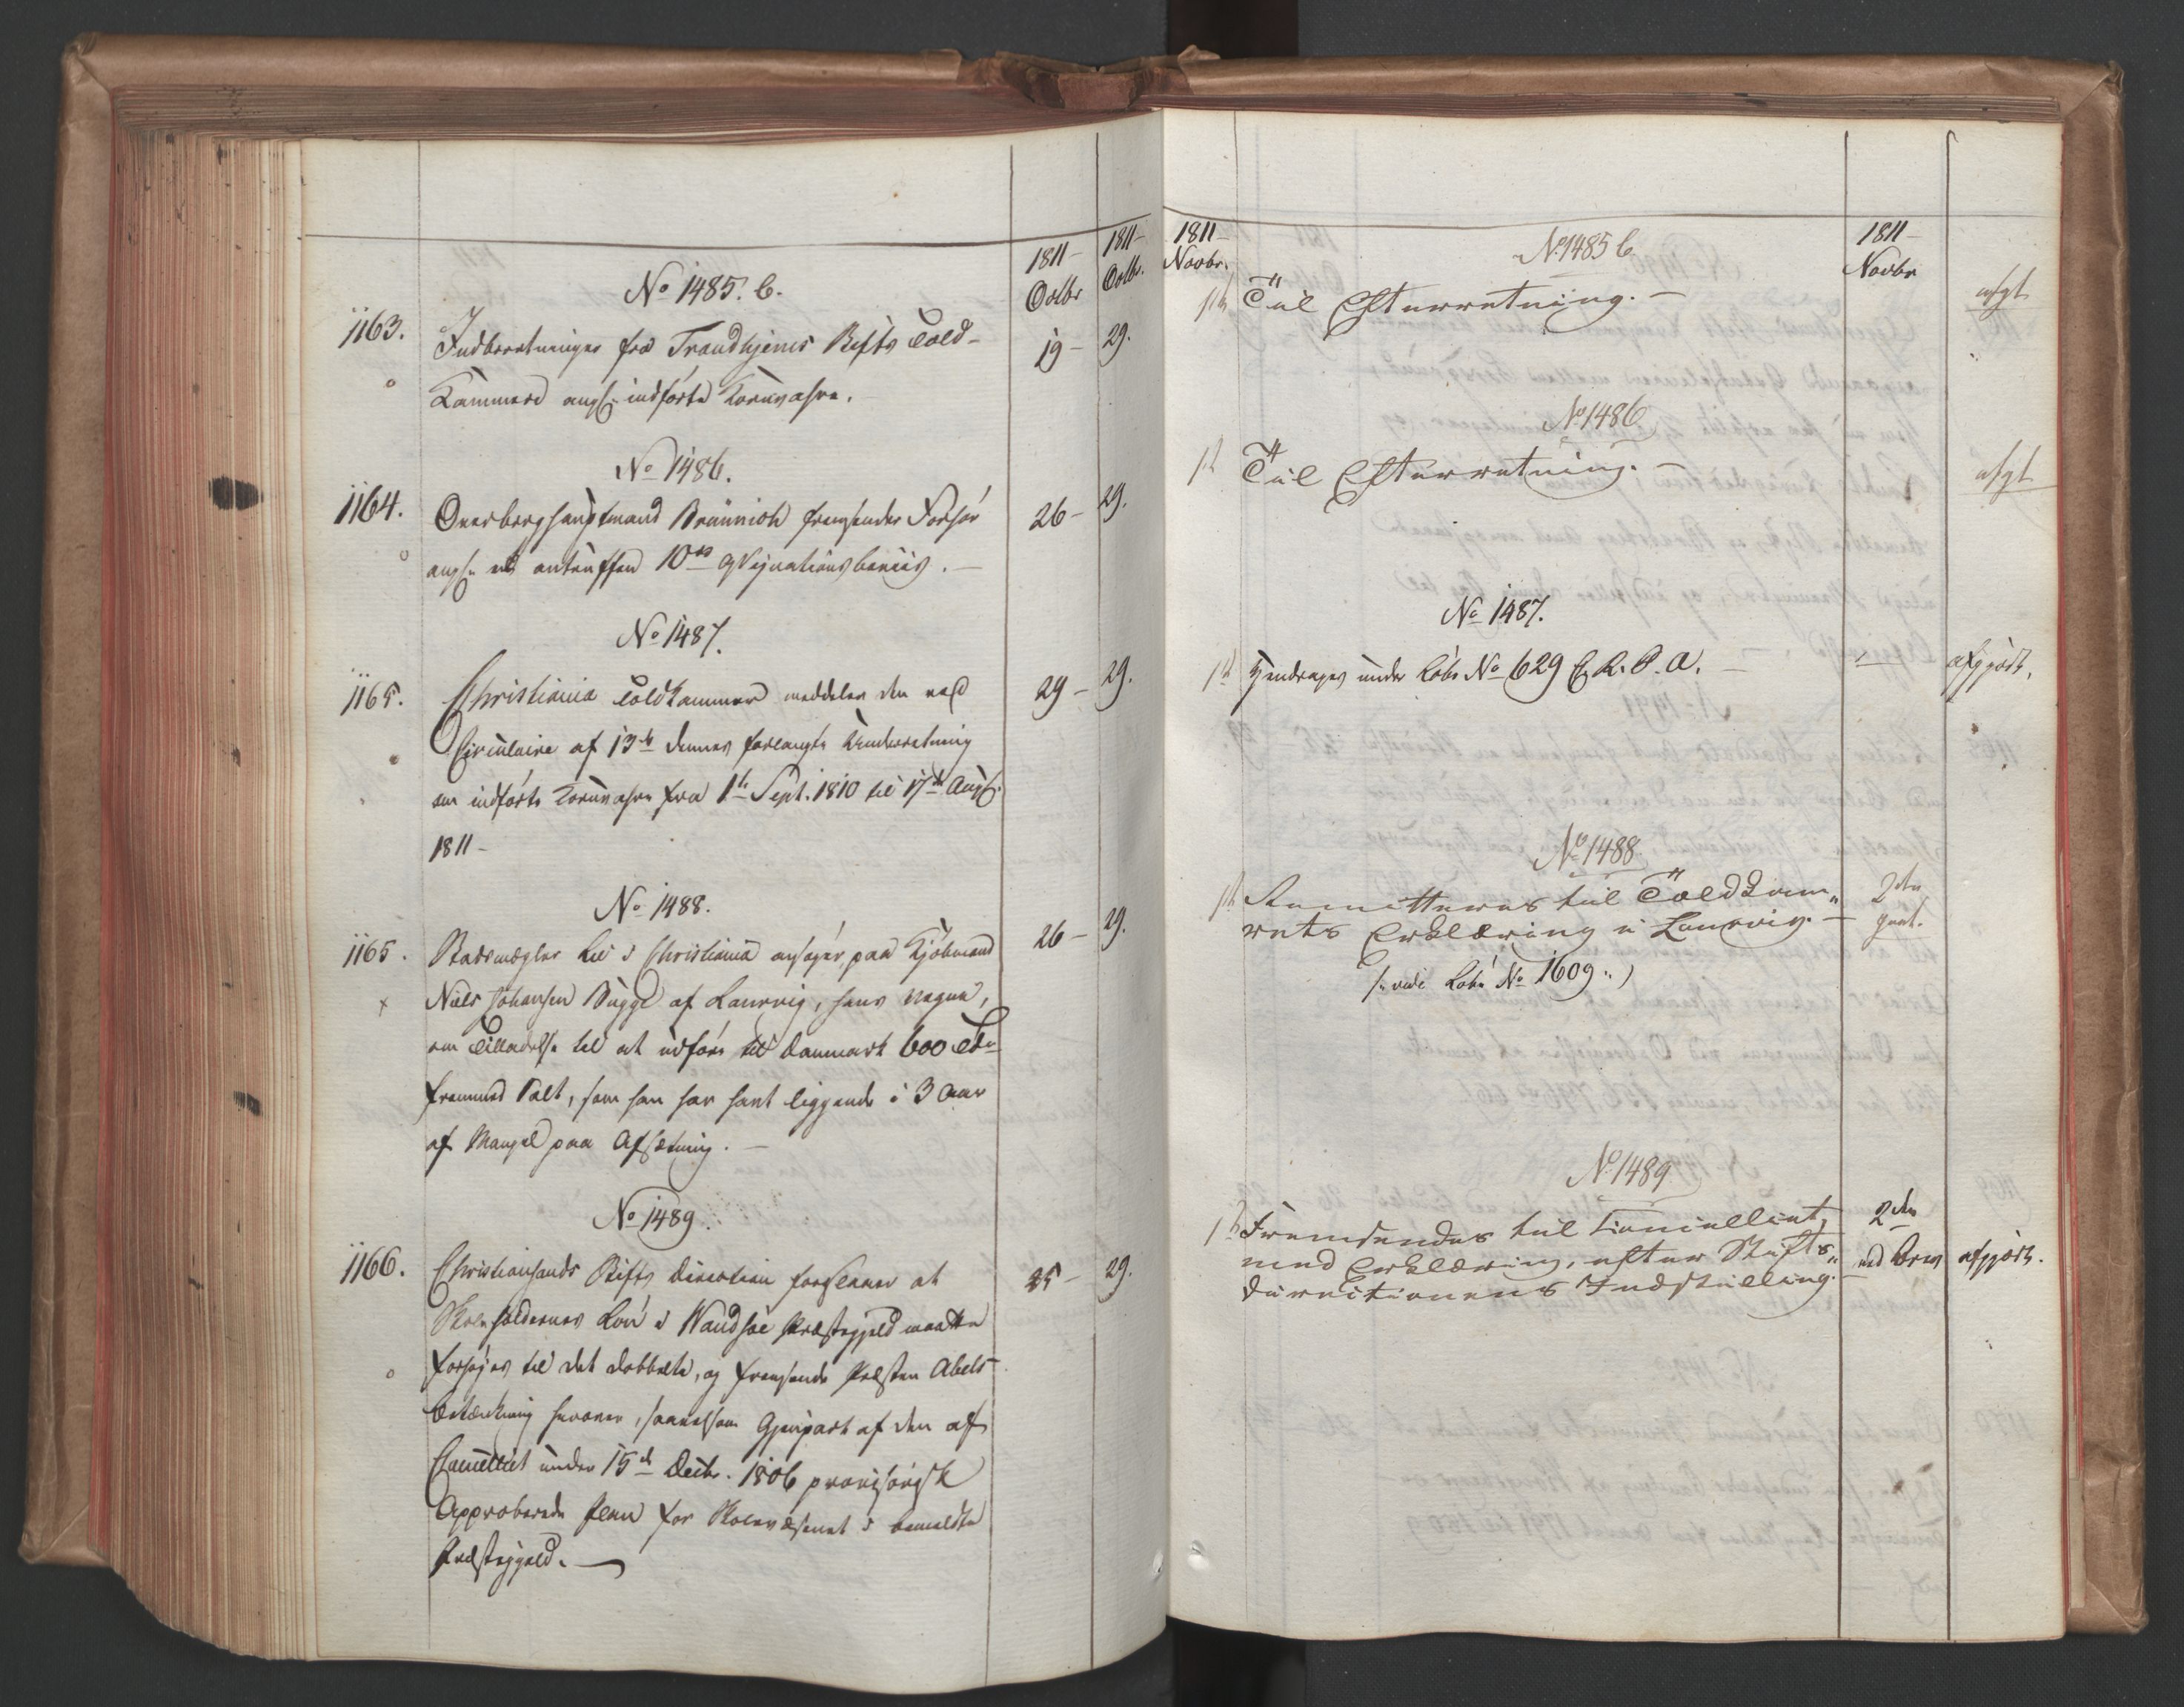 1811 –
Octbr
1811 –
Octbr.
No 1485. b.
1163.
Indberetninger fra Trondhjems Stifts Told-
19 –
29.
Kammere angl. indførte Kornvahre.
No 1486.
1164.
Overberghauptmand Brünnich fremsender Forhør
26 –
29.
angl. et antruffen 10 rd Assignationsbeviis. –
No 1487.
1165.
Christiania Toldkammer meddeler den ved
29 –
29.
Circulaire af 13de dennes forlangte Underretning
om indførte Kornvahre fra 1te Sept. 1810 til 17de Aug.
1811 –
No 1488.
1165.
Stadsmægler Lie i Christiania ansøger, paa Kjøbmand
26 –
29.
Niels Johansen Bugge af Laurvig, hans Vegne,
om Tilladelse til at udføre til Danmark 600 Tdr
fremmed Salt, som han har havt liggende i 3 Aar
af Mangel paa Afsætning. –
No 1489.
1166.
Christiansands Stifts Direction foreslaaer at
25 –
29.
Skoleholdernes Løn i Wandsøe Præstegjeld maatte
forhøjes til det dobbelte, og fremsende Præsten Abels
Betænkning herover, saavelsom Gjenpart af den af
Cancelliet under 15de Decbr. 1806 provisorisk
Approberede Plan for Skolevæsenet i bemeldte
Præstegjeld. –
1811 –
Novbr.
1811 –
Novbr
No 1485 b.
1te Til Efterretning. –
afgt.
No 1486
1te Til Efterretning. –
afgt
No 1487.
1te Henlægges under Løbe No 629 E. R. P. A. –
afgjort.
No 1488
1te Remitteres til Toldkam„
2den
rets Erklæring i Laurvig. –
(: vide Løbe No 1609 :)
No 1489
1te Fremsendes til Cancelliet,
2den
med Erklæring, efter Stifts„
ved Brev
afgjort.
directionens Indstilling. –